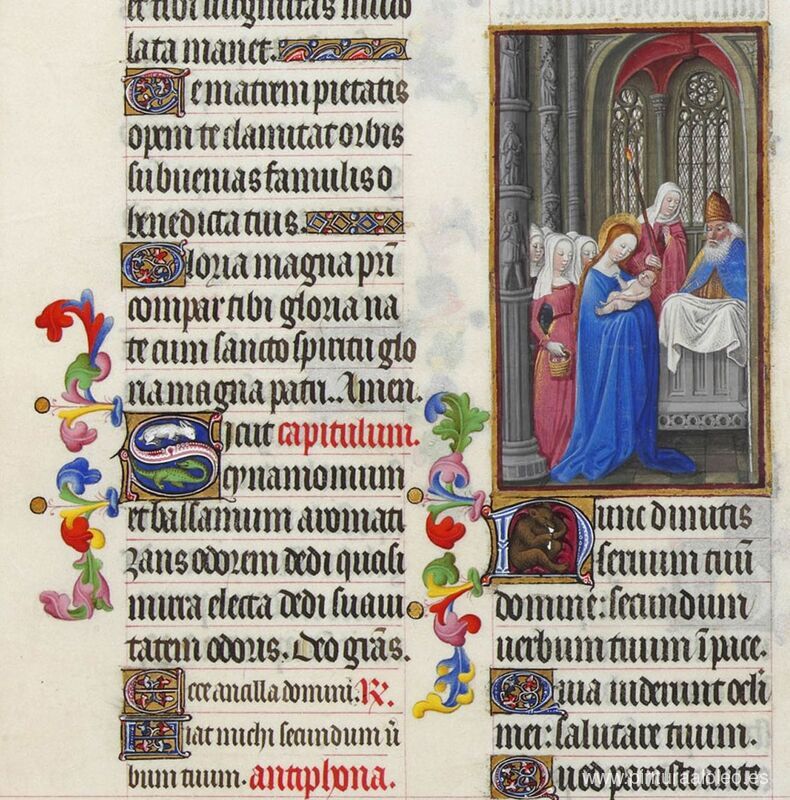 et tibi
lata manet.
Te matrem pietatis
opem te clamitat orbis
subuenias famulis o
benedicta tuis.
Gloria magna pri̅
compar tibi gloria na
te cum sancto spiritu glo
ria magna patri. Amen.
Sicut capitulum.
cynamomum
et balsamum aromati
zans odorem dedi quasi
mirra electa dedi suaui
tatem odoris. Deo gr̅as.
Ecce ancilla domini. R.
Fiat michi secundum u̅
bum tuum. antiphona.
Nunc dimitis
seruum tuu̅
domine: secundum
uerbum tuum i̅ pace.
Quia uiderunt oculi
mei: salutare tuum.
Quod parasti ante
www.pinturaaloleo.es